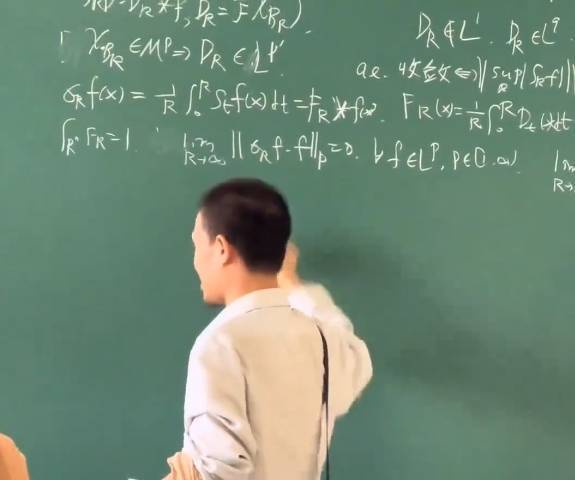 D_R = F(χ_{B_R})
D_R ∉ L^1. D_R ∈ L^q
χ_{B_R} ∈ M^p ⇒ D_R ∈ L^{p'}
a.e. 收敛 ⇔ || sup_R |S_R f| ||
σ_R f(x) = 1/R ∫_0^R S_t f(x) dt = F_R * f(x). F_R(x) = 1/R ∫_0^R D_t(x) dt
∫_{R^n} F_R = 1. lim_{R→∞} ||σ_R f - f||_p = 0. ∀ f ∈ L^p, p ∈ [1, ∞) lim_{R→